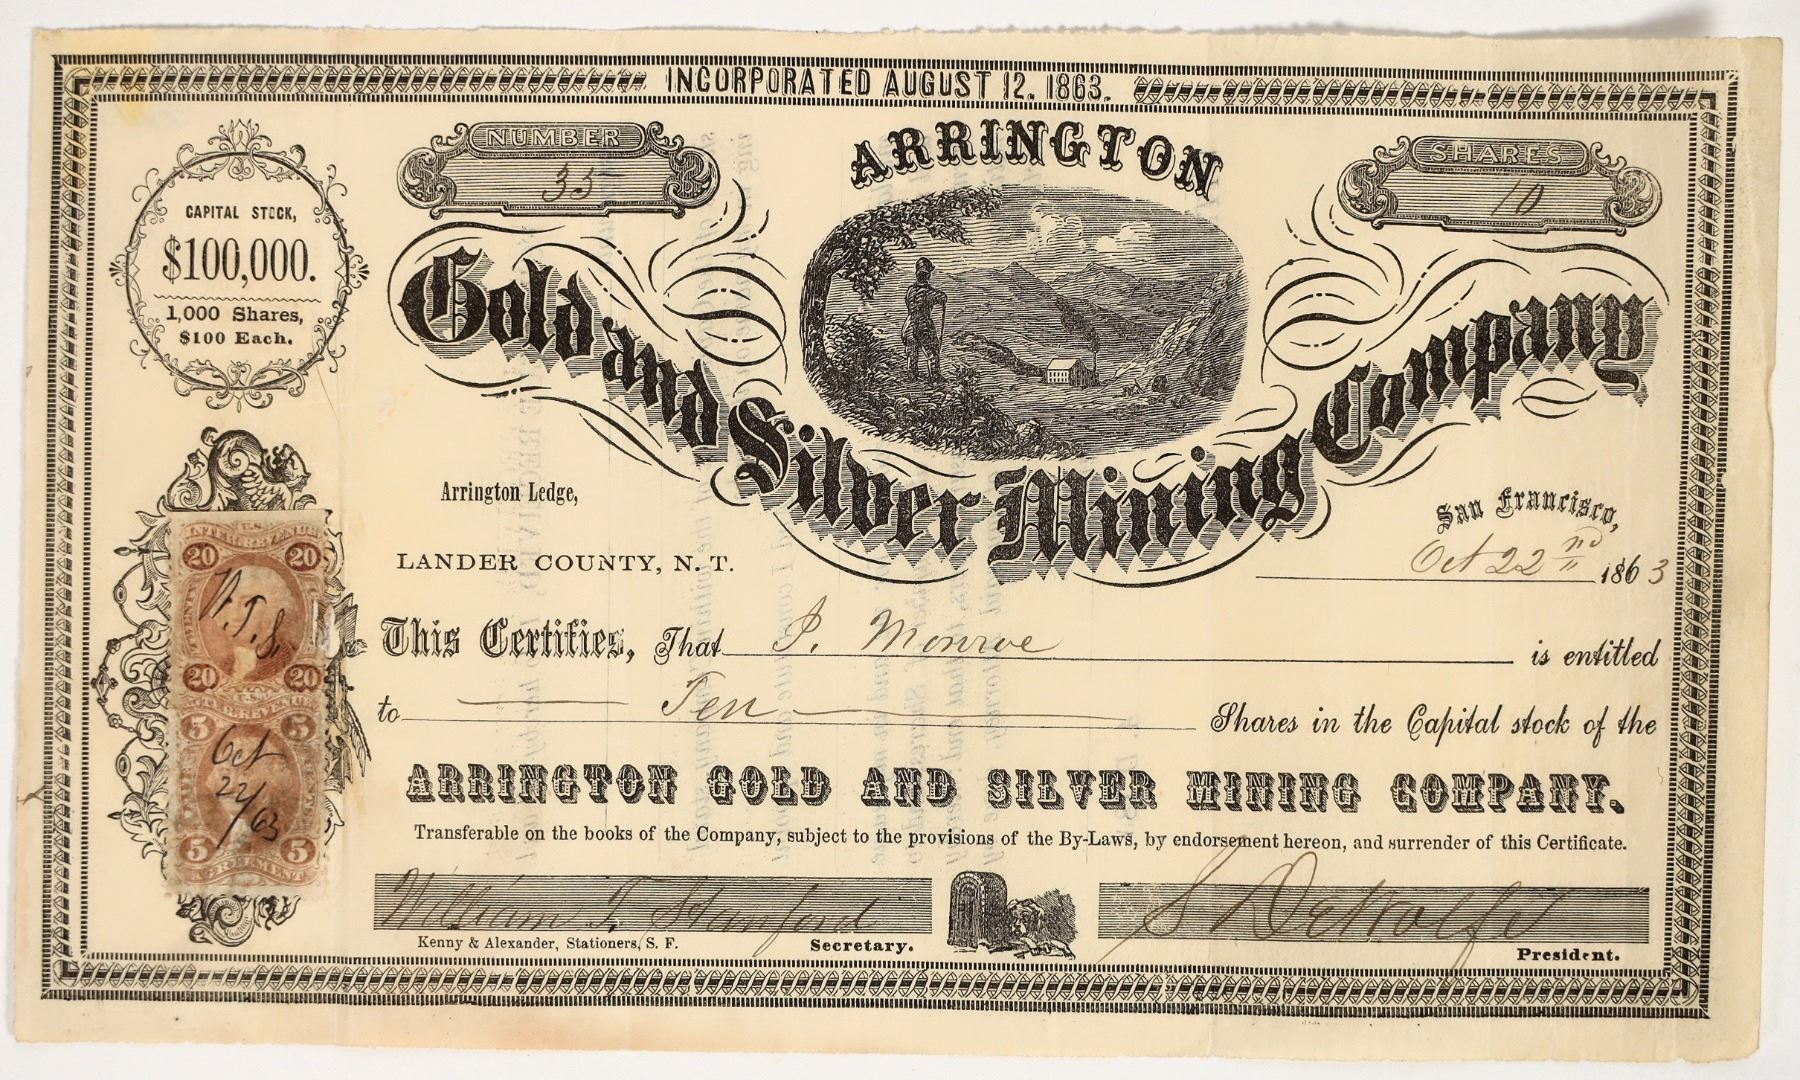 INCORPORATED AUGUST 12. 1863.
NUMBER
35
ARRINGTON
SHARES
10
CAPITAL STOCK,
$100,000.
1,000 Shares,
$100 Each.
Gold and Silver Mining Company
Arrington Ledge,
LANDER COUNTY, N. T.
San Francisco,
Oct 22nd 1863
U.S.
INTER. REVENUE
20 20
W.T.S.
20 20
U.S.
INTER. REVENUE
5 5
Oct
22/63
5 5
AGREEMENT
This Certifies, That J. Monroe is entitled
to Ten Shares in the Capital stock of the
ARRINGTON GOLD AND SILVER MINING COMPANY.
Transferable on the books of the Company, subject to the provisions of the By-Laws, by endorsement hereon, and surrender of this Certificate.
William T. Stanford
S
Kenny & Alexander, Stationers, S. F.
Secretary.
President.